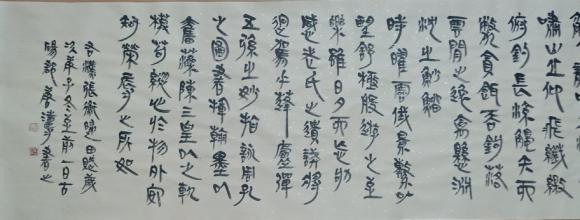 嘯山丘仰飛纖繳
俯釣長流觸矢而
斃貪餌吞鉤落
雲間之逸禽懸淵
沈之魦鰡
時曜靈俄景繫以
望舒極般遊之至
樂雖日夕而忘劬
感老氏之遺誡將
迴駕乎蓬廬彈
五弦之妙指詠周孔
之圖書揮翰墨以
奮藻陳三皇之軌
模苟縱心於物外安
知榮辱之所如
右漢張衡歸田賦歲
次甲午冬至前一日古
陽郡書之